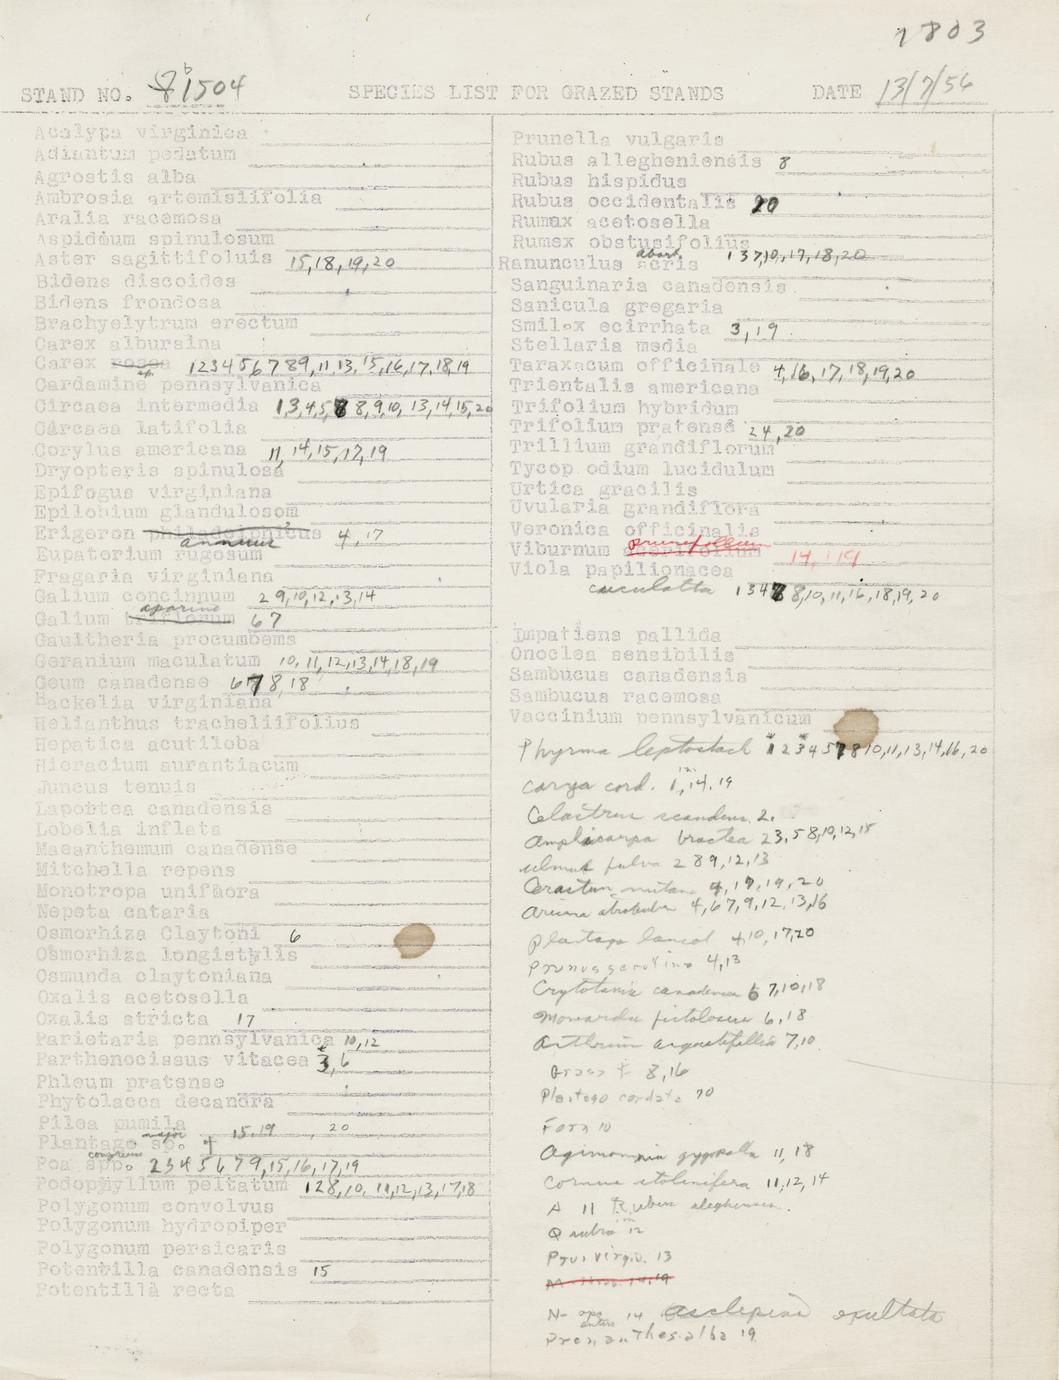 7803
STAND NO. 1504 SPECIES LIST FOR GRAZED STANDS DATE 13/7/56
Acalypa virginica
Adiantum pedatum
Agrostis alba
Ambrosia artemisiifolia
Aralia racemosa
Aspidium spinulosum
Aster sagittifoluis 15,18,19,20
Bidens discoides
Bidens frondosa
Brachyelytrum erectum
Carex albursina
Carex rosea sp. 1 2 3 4 5 6 7 8 9, 11, 13, 15, 16, 17, 18, 19
Cardamine pennsylvanica
Circaea intermedia 1,3,4,5, 8,9,10, 13,14,15,20
Circaea latifolia
Corylus americana 11, 14, 15, 17, 19
Dryopteris spinulosa
Epifogus virginiana
Epilobium glandulosom
Erigeron philadelphicus annuus 4, 17
Eupatorium rugosum
Fragaria virginiana
Galium concinnum 2 9,10,12,13,14
Galium triflorum aparine 6 7
Gaultheria procumbems
Geranium maculatum 10, 11, 12, 13, 14, 18, 19
Geum canadense 6 7 8, 18
Hackelia virginiana
Helianthus tracheliifolius
Hepatica acutiloba
Hieracium aurantiacum
Juncus tenuis
Laportea canadensis
Lobelia inflata
Maeanthemum canadense
Mitchella repens
Monotropa uniflora
Nepeta cataria
Osmorhiza Claytoni 6
Osmorhiza longistylis
Osmunda claytoniana
Oxalis acetosella
Oxalis stricta 17
Parietaria pennsylvanica 10,12
Parthenocissus vitacea 3,6
Phleum pratense
Phytolacca decandra
Pilea pumila
Plantago sp. major 15, 19, 20
Poa spp. 2 3 4 5 6 7 9, 15, 16, 17, 19
Podophyllum peltatum 1 2 8, 10, 11, 12, 13, 17, 18
Polygonum convolvus
Polygonum hydropiper
Polygonum persicaris
Potentilla canadensis 15
Potentilla recta
Prunella vulgaris
Rubus allegheniensis 8
Rubus hispidus
Rubus occidentalis 20
Rumax acetosella
Rumex obstusifolius
Ranunculus acris abort. 1 3 7,10, 17, 18, 20
Sanguinaria canadensis
Sanicula gregaria
Smilax ecirrhata 3, 19
Stellaria media
Taraxacum officinale 4,16, 17, 18, 19, 20
Trientalis americana
Trifolium hybridum
Trifolium pratense 2 4, 20
Trillium grandiflorum
Tycop odium lucidulum
Urtica gracilis
Uvularia grandiflora
Veronica officinalis
Viburnum acerifolium prunifolium 14, 19
Viola papilionacea
cuculatta 1 3 4 8,10, 11, 16, 18, 19, 20
Impatiens pallida
Onoclea sensibilis
Sambucus canadensis
Sambucus racemosa
Vaccinium pennsylvanicum
Phyrma leptostach 1 2 3 4 5 7 8 10, 11, 13, 14, 16, 20
Carya cord. 1, 12, 14, 19
Celastrus scandens 2.
Amphicarpa bractea 2 3, 5 8, 10, 12, 15
ulmus fulva 2 8 9, 12, 13
Cerastum nutans 4, 17, 19, 20
4, 6 7, 9, 12, 13, 16
plantago lanceol 4 10, 17, 20
Prunus serotina 4, 13
Crytotania canadensis 6 7, 10, 18
Monarda fistolosa 6, 18
angustifolia 7, 10
Grass 8, 16
Plantago cordata 20
Fern 10
Agimomnia gyposella 11, 18
Cornus stolinifera 11, 12, 14
A 11 Rubus alegheniensis.
Q rubra 12
Pru. virgin. 13
14 Asclepias exaltata
Prenanthes alba 19